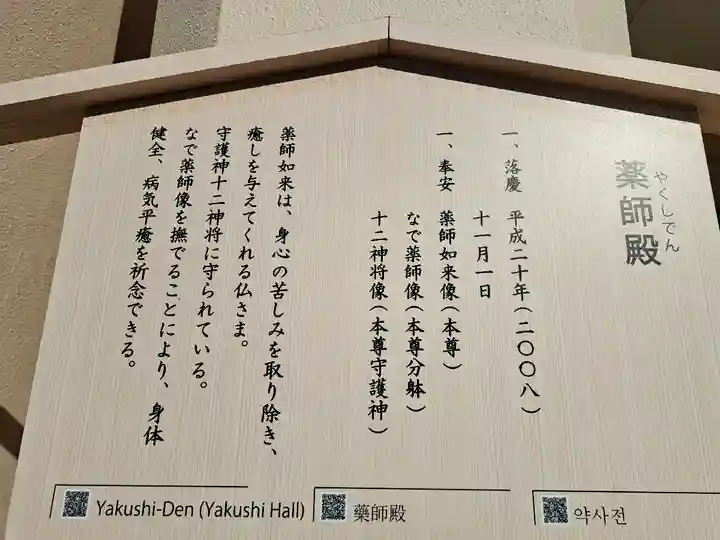 やくしでん
薬師殿
一、落慶 平成二十年(二〇〇八)
十一月一日
一、奉安 薬師如来像(本尊)
なで薬師像(本尊分躰)
十二神将像(本尊守護神)
薬師如来は、身心の苦しみを取り除き、
癒しを与えてくれる仏さま。
守護神十二神将に守られている。
なで薬師像を撫でることにより、身体
健全、病気平癒を祈念できる。
Yakushi-Den (Yakushi Hall)
藥師殿
약사전